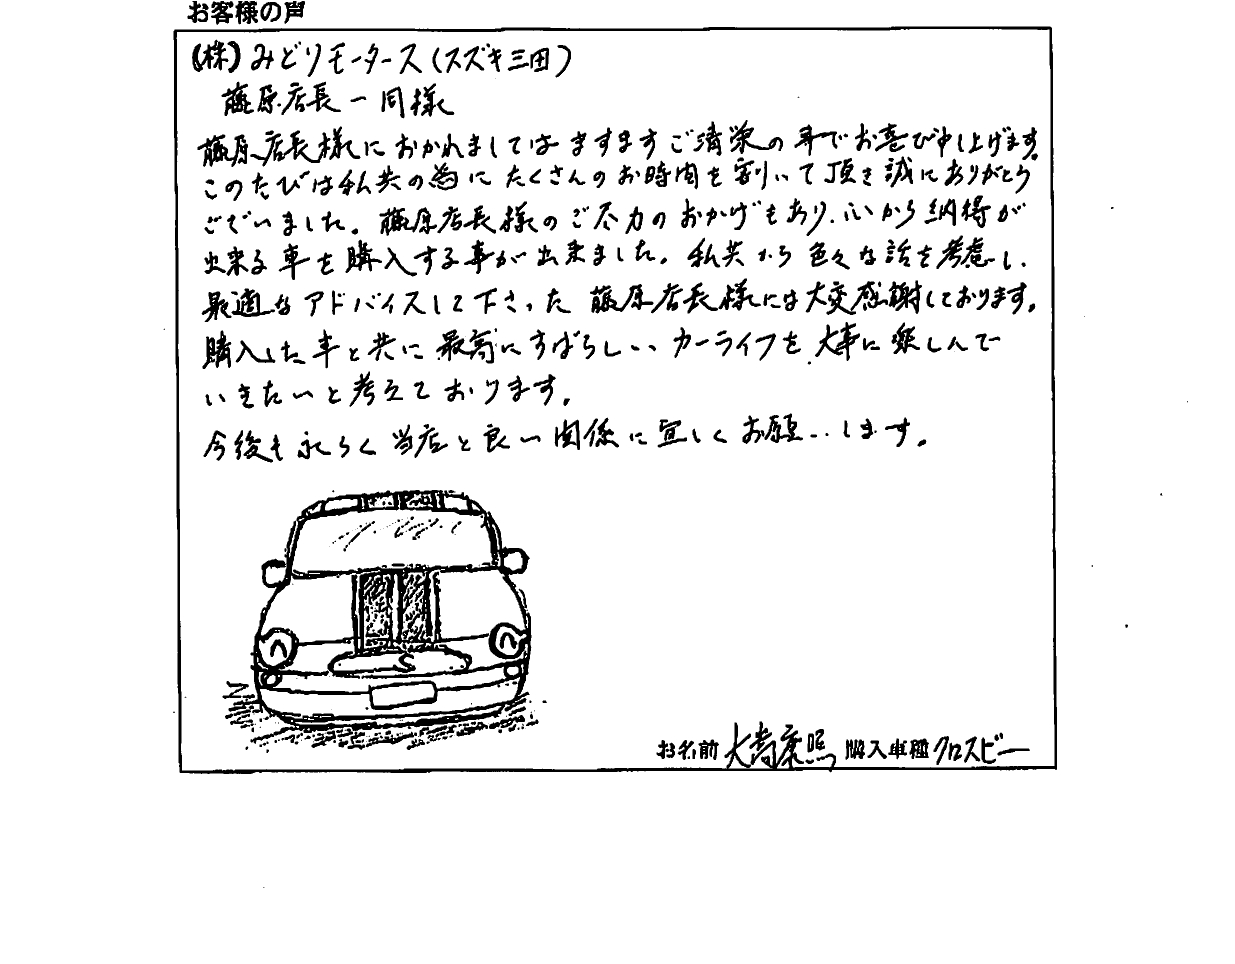 お客様の声
(株)みどりモータース(スズキ三田)
藤原店長一同様
藤原店長様におかれましてはますますご清栄の事でお喜び申し上げます。
このたびは私共の為にたくさんのお時間を割いて頂き誠にありがとう
ございました。藤原店長様のご尽力のおかげもあり、心から納得が
出来る車を購入する事が出来ました。私共から色々な話を考慮し、
最適なアドバイスして下さった藤原店長様には大変感謝しております。
購入した車と共に最高にすばらしいカーライフを大事に楽しんで
いきたいと考えております。
今後も永らく当店と良い関係に宜しくお願いします。
S
お名前 大嵩康 購入車種 クロスビー